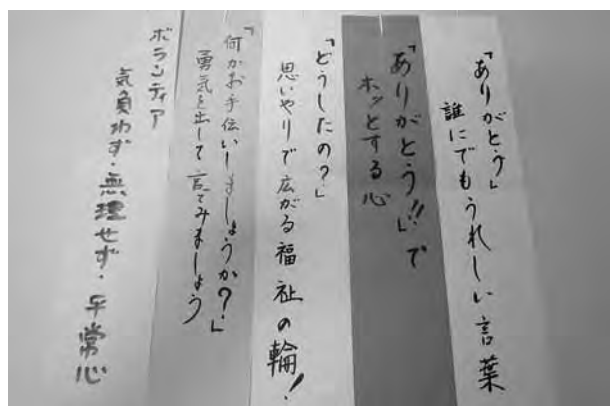 「ありがとう」
誰にでもうれしい言葉
「ありがとう!!」で
ホッとする心
「どうしたの?」
思いやりで広がる福祉の輪!
「何かお手伝いしましょうか?」
勇気を出して言てみましょう
ボランティア
気負わず・無理せず・平常心